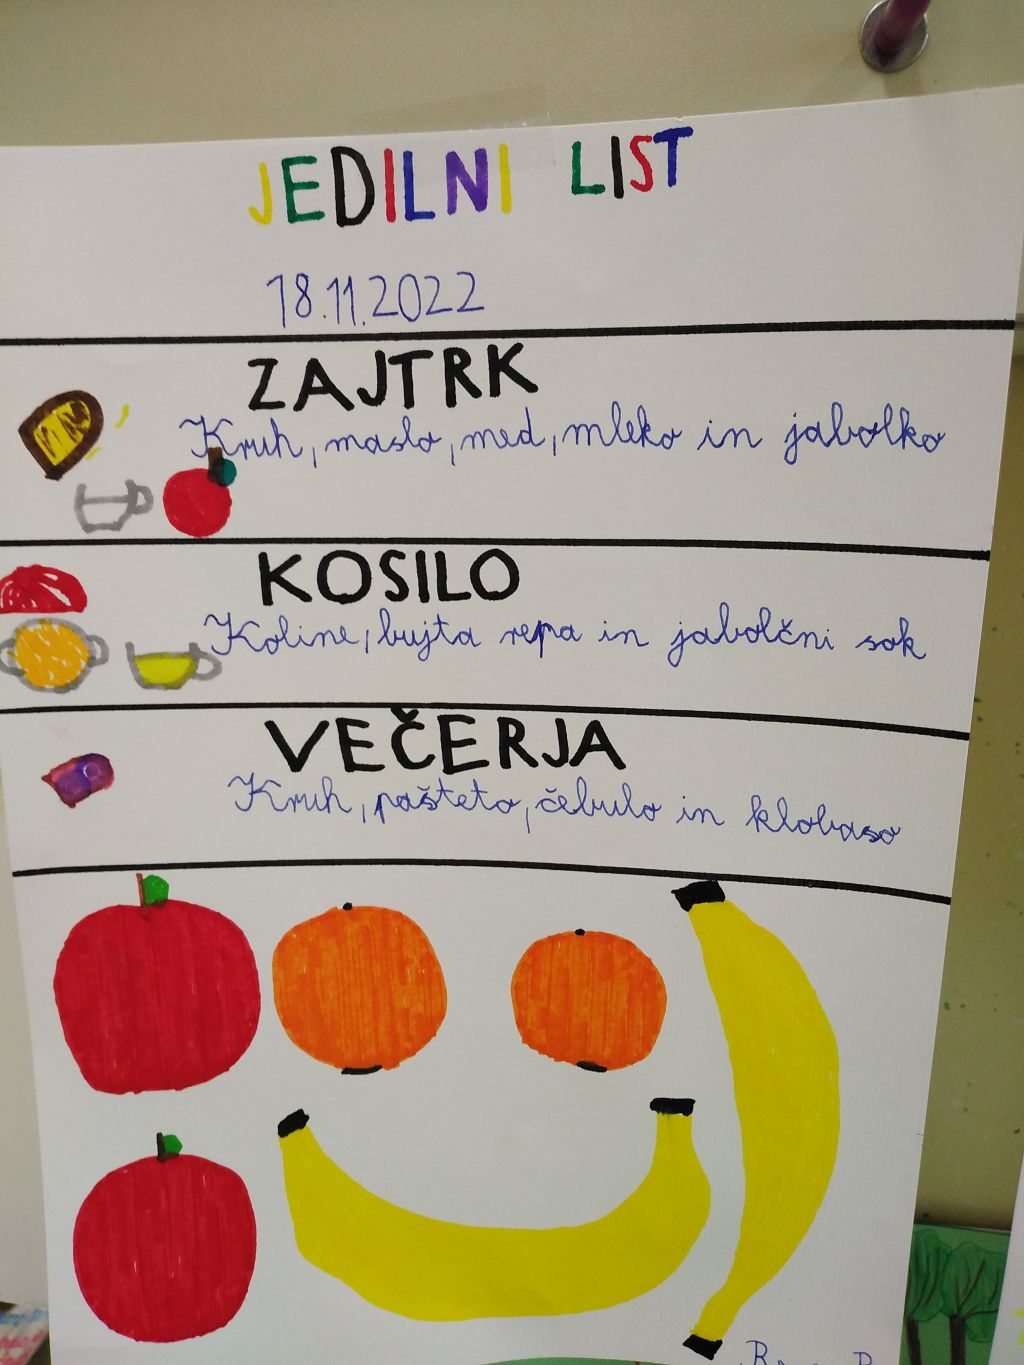 JEDILNI LIST
18.11.2022
ZAJTRK
Kruh, maslo, med, mleko in jabolko
KOSILO
Koline, bujta repa in jabolčni sok
VEČERJA
Kruh, pašteto, čebulo in klobaso